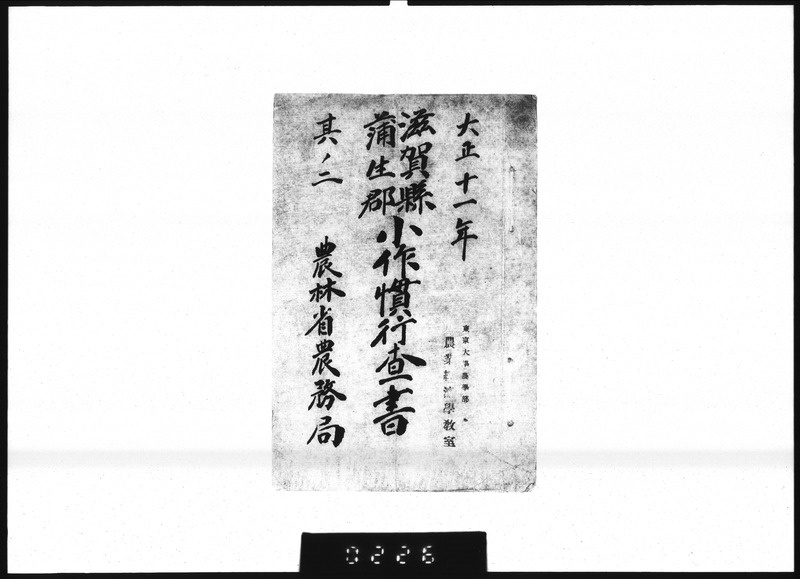 大正十一年
滋賀縣
蒲生郡
小作慣行査書
其ノ二
農林省農務局
東京大學農學部
農業經濟學教室
0226